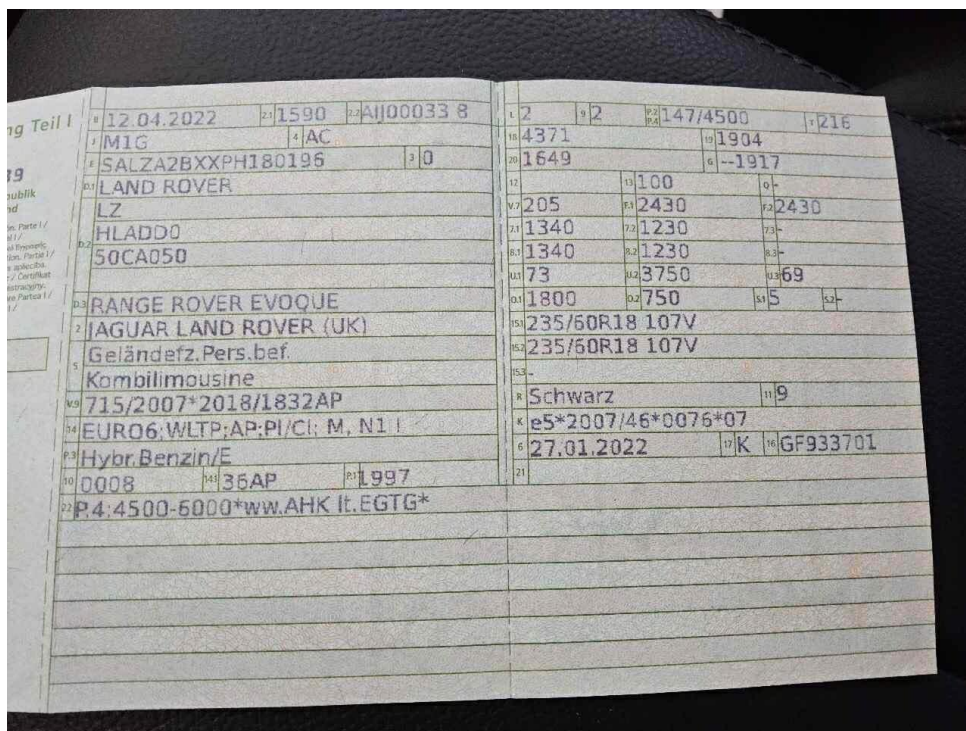 ng Teil I
39
publik
nd
B 12.04.2022 2.1 1590 2.2 AIJ00033 8
J M1G 4 AC
E SALZA2BXXPH180196 3 0
D.1 LAND ROVER
D.2 LZ
HLADD0
50CA050
D.3 RANGE ROVER EVOQUE
2 JAGUAR LAND ROVER (UK)
5 Geländefz.Pers.bef.
Kombilimousine
V.9 715/2007*2018/1832AP
14 EURO6;WLTP;AP;PI/CI; M, N1 I
P.3 Hybr.Benzin/E
10 0008 14.1 36AP P.1 1997
22 P.4:4500-6000*ww.AHK lt.EGTG*
L 2 9 2 P.2 P.4 147/4500 T 216
18 4371 19 1904
20 1649 G --1917
12 13 100 Q -
V.7 205 F.1 2430 F.2 2430
7.1 1340 7.2 1230 7.3 -
8.1 1340 8.2 1230 8.3 -
U.1 73 U.2 3750 U.3 69
O.1 1800 O.2 750 S.1 5 S.2 -
15.1 235/60R18 107V
15.2 235/60R18 107V
15.3 -
R Schwarz 11 9
K e5*2007/46*0076*07
6 27.01.2022 17 K 16 GF933701
21